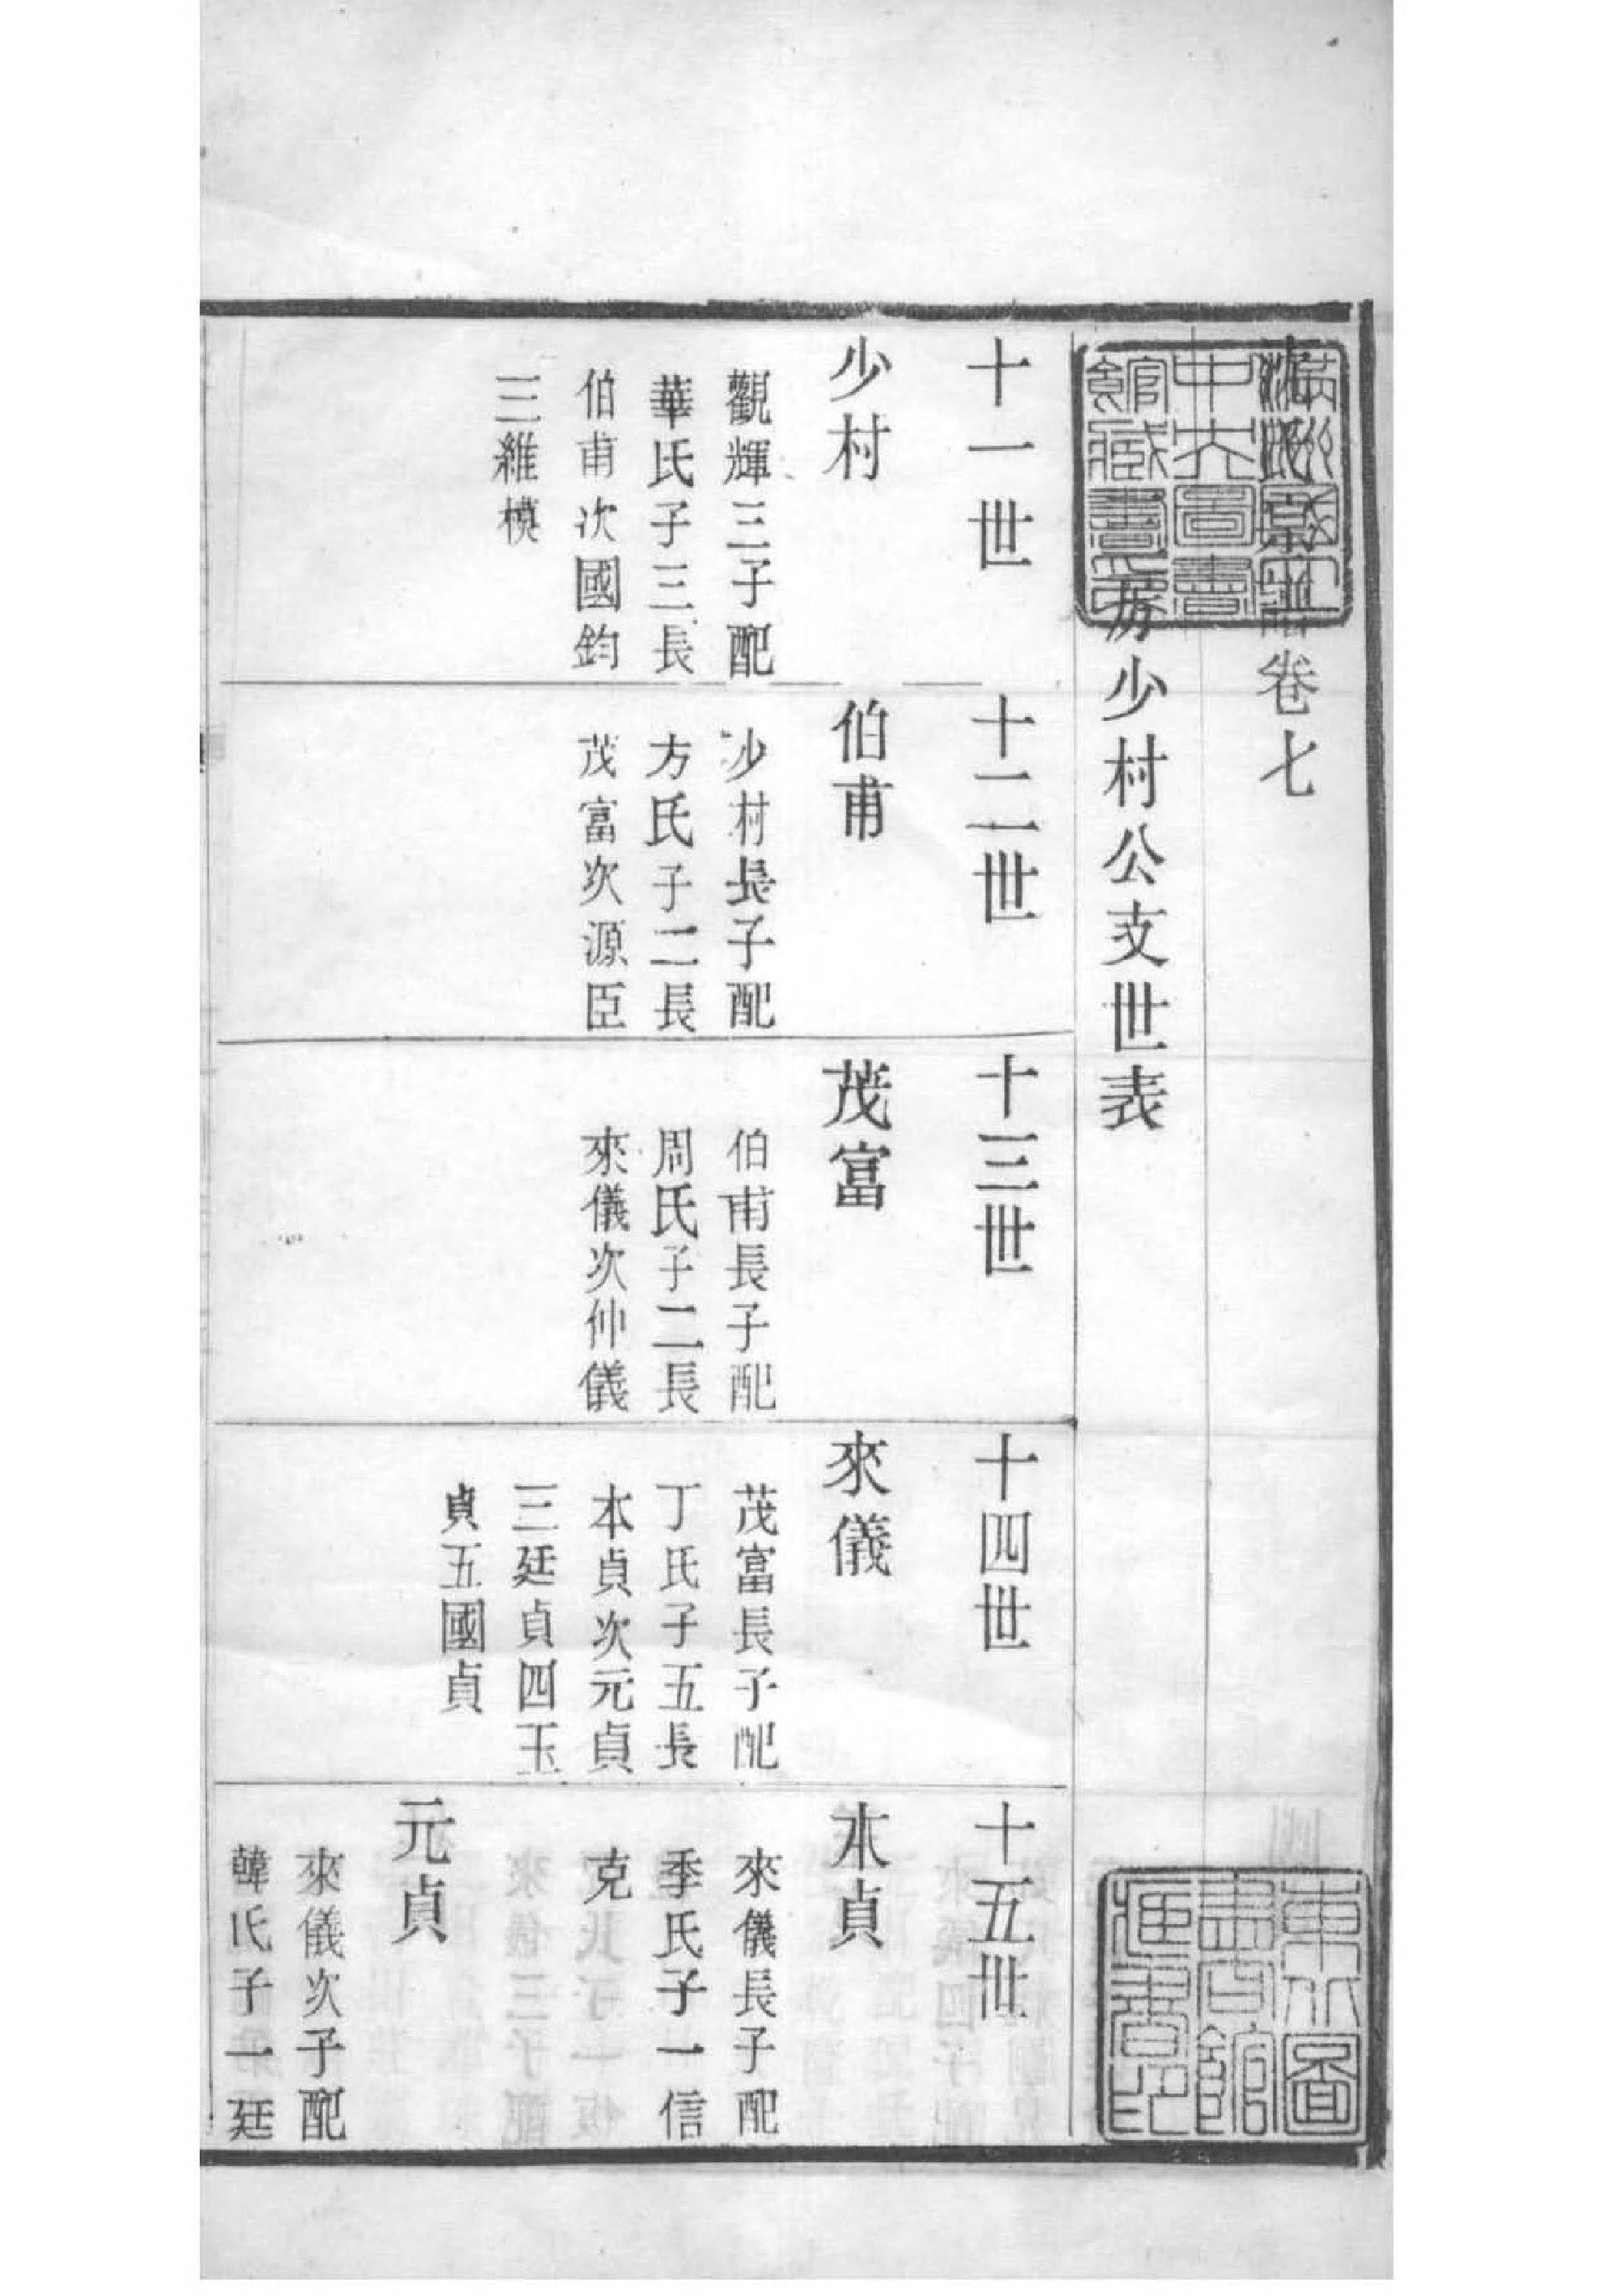 卷七
房少村公支世表
十一世
少村
觀輝三子配
華氏子三長
伯甫次國鈞
三維模
十二世
伯甫
少村長子配
方氏子二長
茂富次源臣
十三世
茂富
伯甫長子配
周氏子二長
來儀次仲儀
十四世
來儀
茂富長子配
丁氏子五長
本貞次元貞
三廷貞四玉
貞五國貞
十五世
本貞
來儀長子配
季氏子一信
克
元貞
來儀次子配
韓氏子一廷